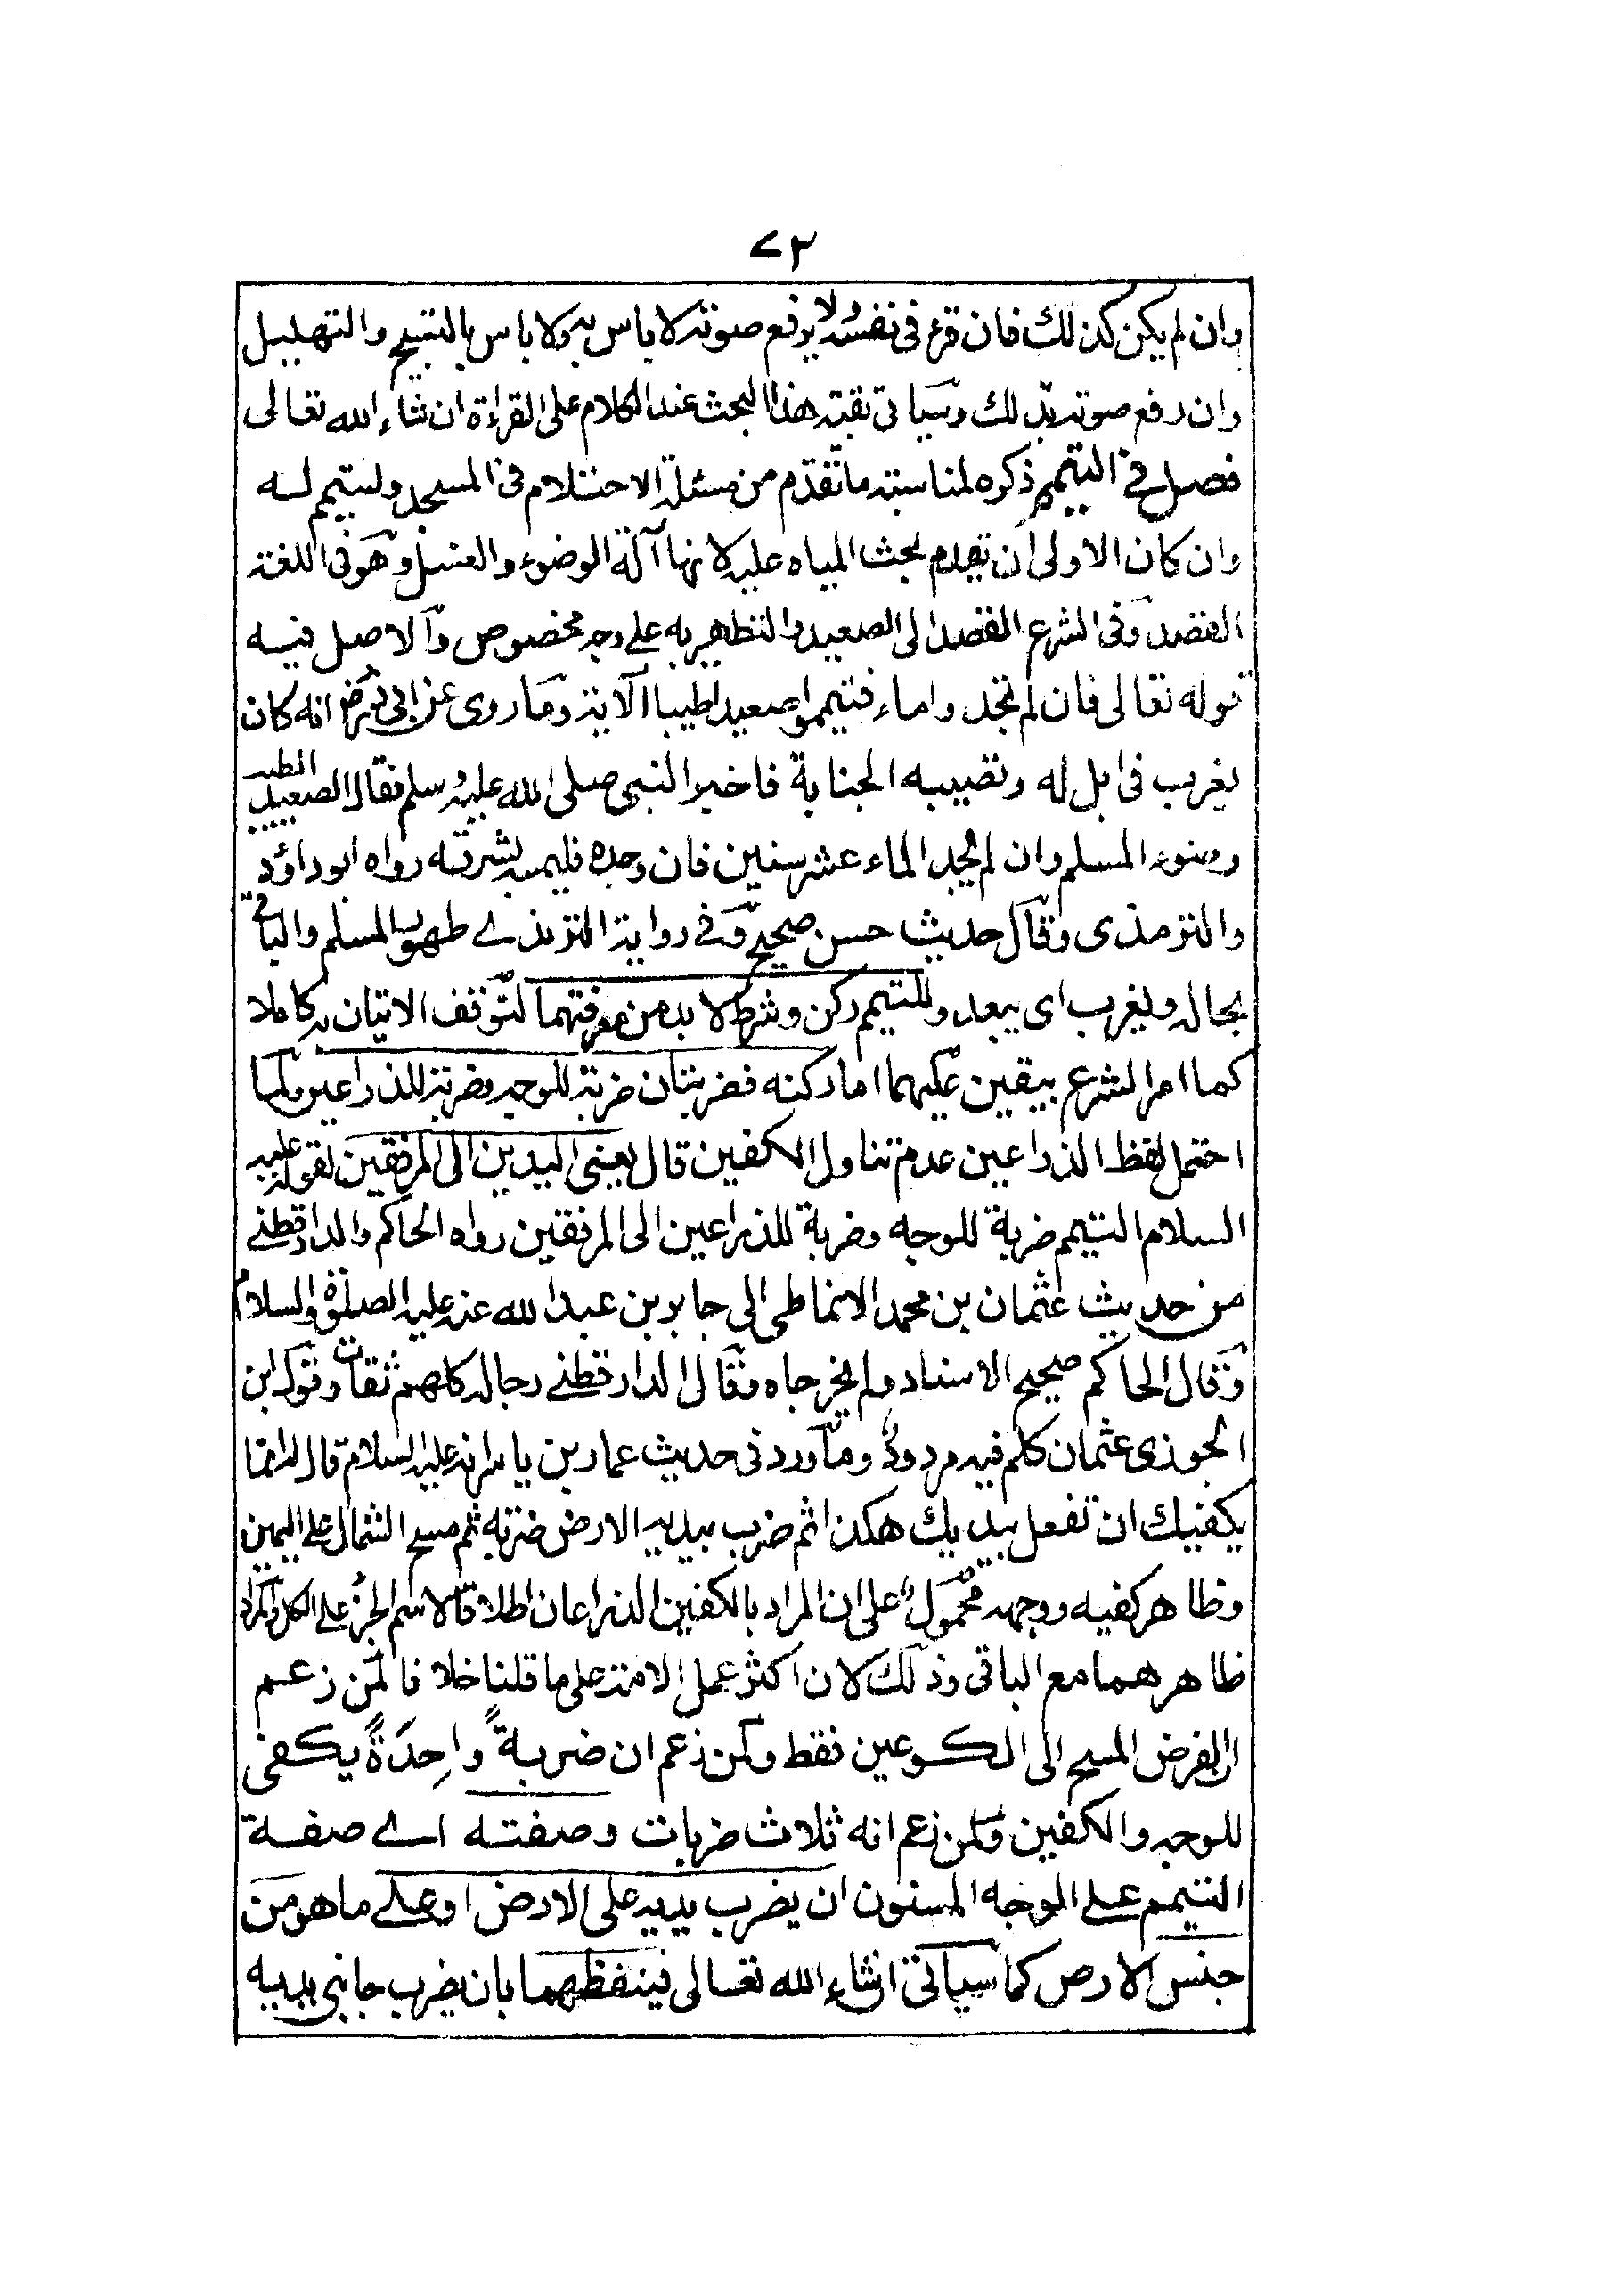 ٧٢
وان لم يكن كذلك فان قرء فى نفسه ولا يرفع صوته لا باس به ولا باس بالتسبيح والتهليل
وان رفع صوته بذلك وسياتى بقية هذا البحث عند الكلام على القراءة ان شاء الله تعالى
فصل فے التيمم ذكره لمناسبته ما تقدم من مسئلة الاحتلام فى المسجد وليتيمم له
وان كان الاولى ان يقدم بحث المياه عليه لانها آلة الوضوء والغسل وهو فى اللغة
القصد وفى الشرع القصد الى الصعيد والتطهير به على وجه مخصوص والاصل فيه
قوله تعالى فان لم تجدوا ماء فتيمموا صعيدا طيبا الآية وما روى عن ابى ذر رض انه كان
يغرب فى ابل له وتصيبه الجنابة فاخبر النبى صلى الله عليه وسلم فقال الصعيد الطيب
وضوء المسلم وان لم يجد الماء عشر سنين فان وجده فليمسه بشرته رواه ابو داؤد
والترمذى وقال حديث حسن صحيح وفے رواية الترمذے طهور المسلم والباقے
بحاله ويغرب اى يبعد وللتيمم ركن وشرط لا بد من معرفتهما لتوقف الاتيان به كاملا
كما امر الشرع بيقين عليهما اما ركنه فضربتان ضربة للوجه وضربة للذراعين ولما
احتمل لفظ الذراعين عدم تناول الكفين قال يعنى اليدين الى المرفقين لقوله عليه
السلام التيمم ضربة للوجه وضربة للذراعين الى المرفقين رواه الحاكم والدارقطنے
من حديث عثمان بن محمد الانماطى الى جابر بن عبد الله عنه عليه الصلوٰة والسلام
وقال الحاكم صحيح الاسناد ولم يخرجاه وقال الدارقطنے رجاله كلهم ثقات وقول ابن
الجوزى عثمان كلم فيه مردودٌ وما ورد فى حديث عمار بن ياسر انه عليه السلام قال له انما
يكفيك ان تفعل بيديك هكذا ثم ضرب بيديه الارض ضربة ثم مسح الشمال على اليمين
وظاهر كفيه ووجهه محمولٌ على ان المراد بالكفين الذراعان اطلاقا لاسم الجزء على الكل والمراد
ظاهرهما مع الباقى وذلك لان اكثر عمل الامة على ما قلنا خلافا لمن زعم
ان الفرض المسح الى الكوعين فقط ولمن زعم ان ضربةً واحِدَةً يكفى
للوجه والكفين ولمن زعم انه ثلاث ضربات وصفته اے صفة
التيمم على الوجه المسنون ان يضرب يديه على الارض او على ما هو من
جنس الارض كما سياتى انشاء الله تعالى فينفضهما بان يضرب جانبى يديه